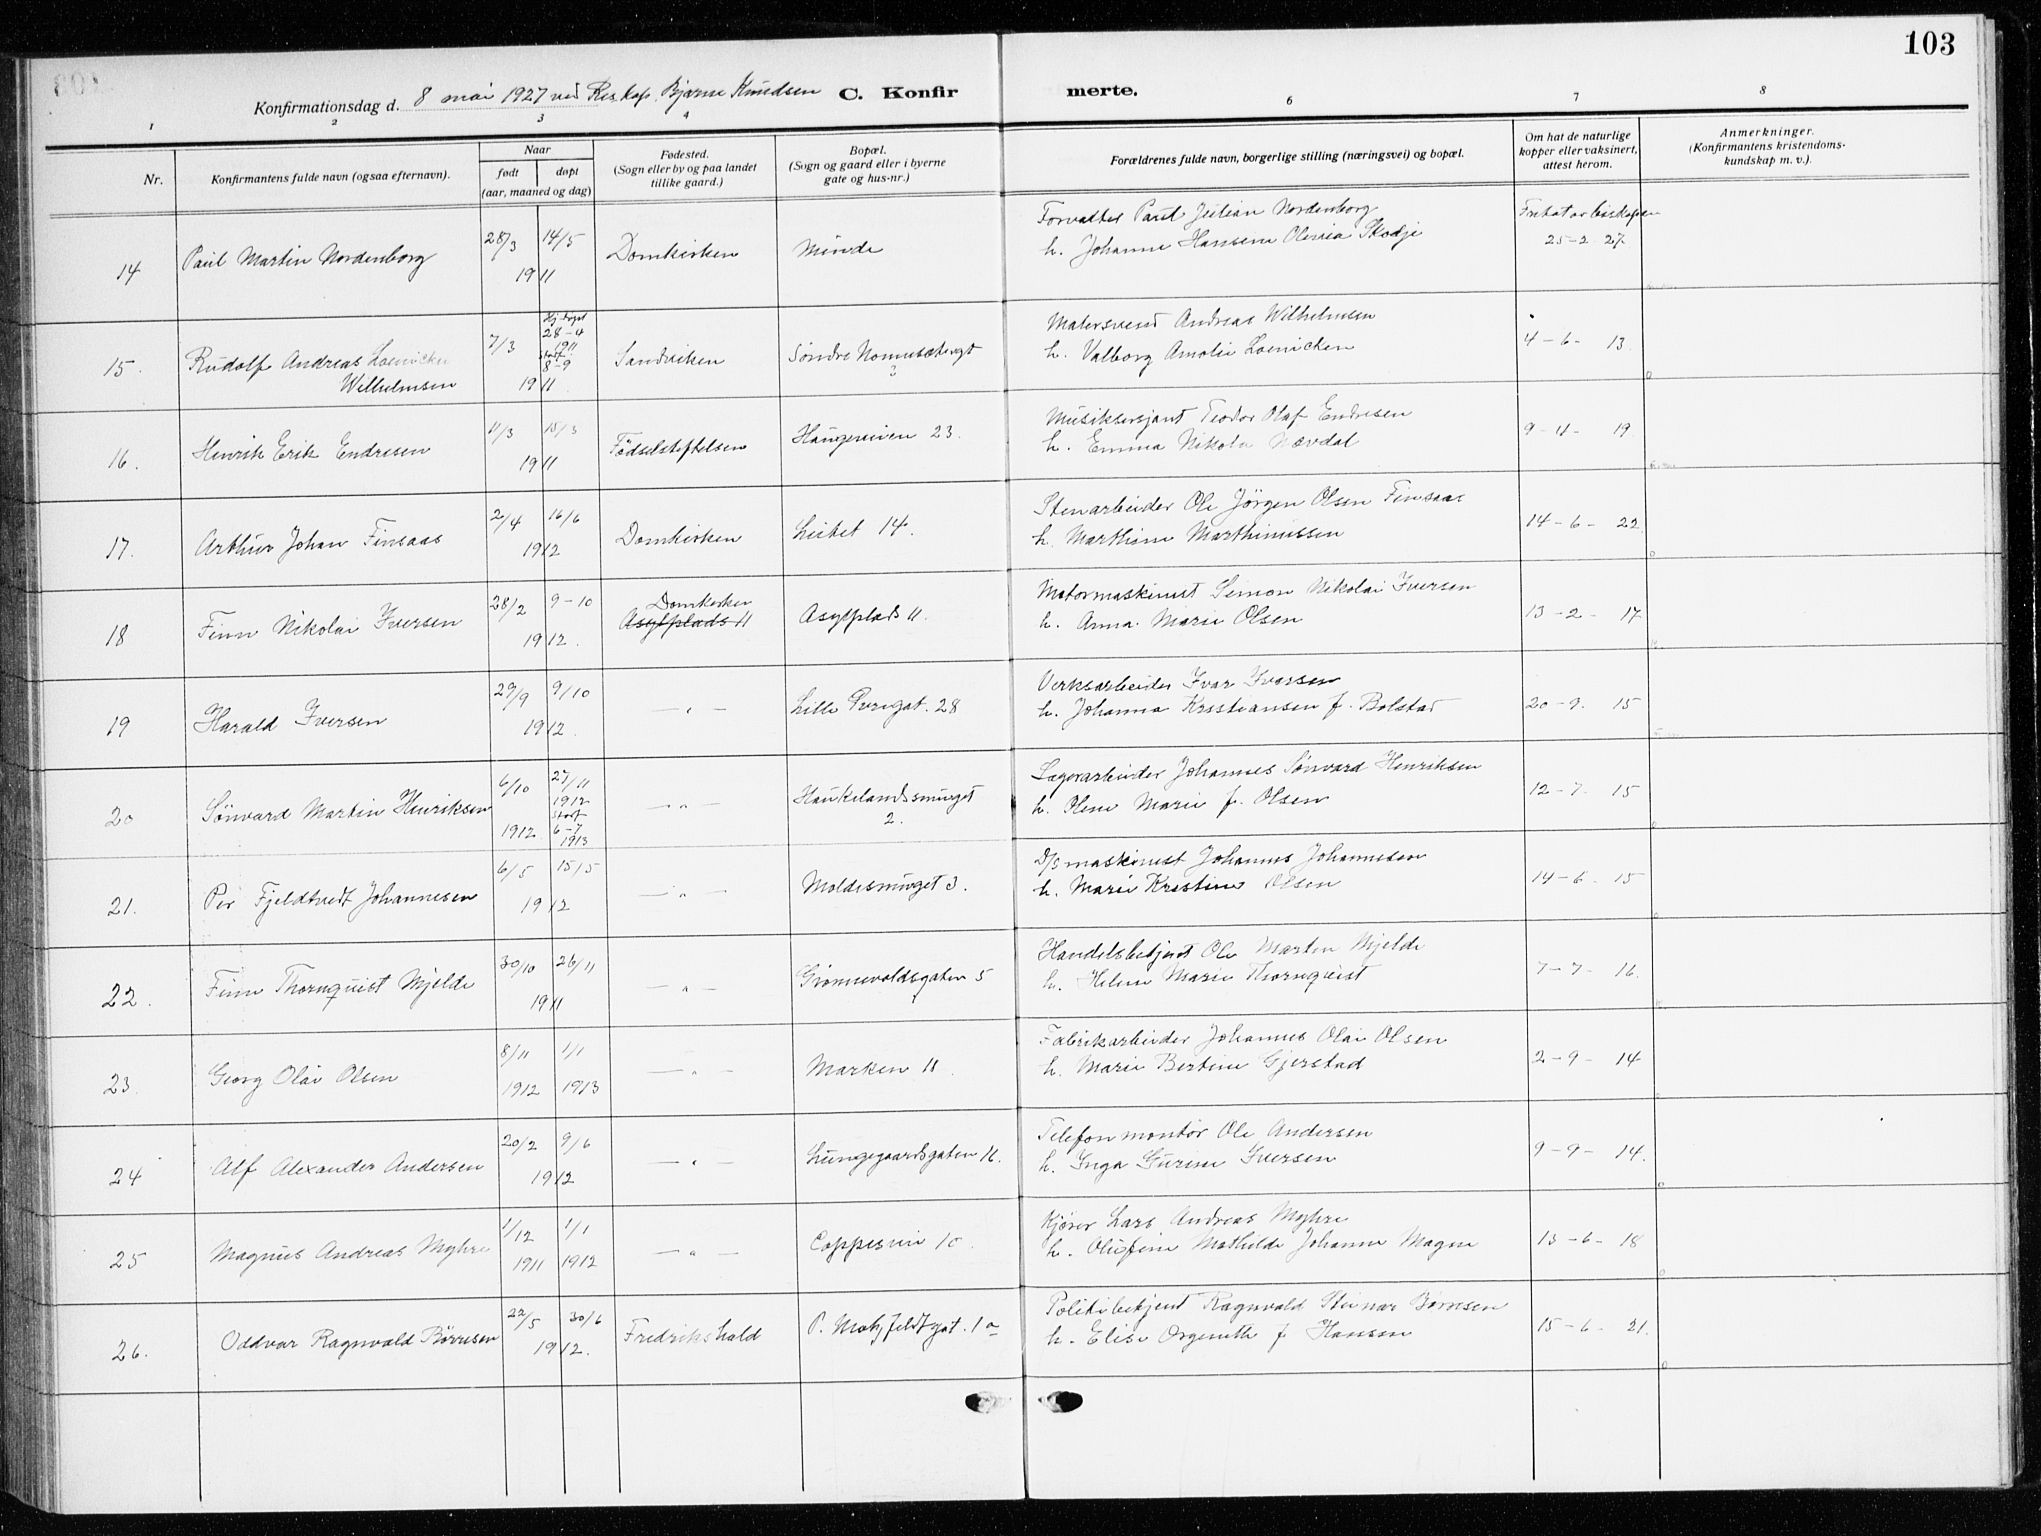 103
Konfirmationsdag d. 8 mai 1927 ved Res. kap. Bjarne Knudsen C. Konfirmerte.
1 2 3 4 6 7 8
Nr.
Konfirmantens fulde navn (ogsaa efternavn).
Naar
født døpt
(aar, maaned og dag)
Fødested.
(Sogn eller by og paa landet
tillike gaard.)
Bopæl.
(Sogn og gaard eller i byerne
gate og hus-nr.)
Forældrenes fulde navn, borgerlige stilling (næringsvei) og bopæl.
Om hat de naturlige
kopper eller vaksinert,
attest herom.
Anmerkninger.
(Konfirmantens kristendoms-
kundskap m. v.).
14 Paul Martin Nordenborg 28/3 14/5 1911 Domkirken Minde
Forvalter Paul Julian Nordenborg
h. Johanne Hansine Olevia Skodje
Fritat av biskopen
25-2 27.
15. Rudolf Andreas Loenicken
Wilhelmsen
7/3 1911
Hj. døpt
28-4
1911
stadf.
8-9
Sandviken
3
Andreas Wilhelmsen
h. Valborg Amalie Loenicken
4-6- 13.
16. Henrik Erik Endresen 11/3 15/3 1911 Fødselsstiftelsen Haugeveien 23.
Musiksersjant Teodor Olaf Endresen
h. Emma Nikola Nævdal
9-4- 19
17. Arthur Johan Finsaas 2/4 16/6 1912 Domkirken Leitet 14.
Stenarbeider Ole Jörgen Olsen Finsaas
h. Marthine Marthinussen
14-6- 22.
18 Finn Nikolai Iversen 28/2 9-10 1912. Domkirken
Asylplads 11
Asylplads 11.
Motormaskinist Simon Nikolai Iversen
h. Anna Marie Olsen
13-2- 17
19 Harald Iversen 29/9 9/10 1912. — „ — Lille Øvregat. 28
Verksarbeider Ivar Iversen
h. Johanna Kristiansen f. Bolstad
20-9. 15
20 Sönvard Martin Henriksen 6/10 1912.
27/11
1912
stadf.
6-7
1913
— „ — Haukelandssmuget
2.
Lagerarbeider Johannes Sönvard Henriksen
h. Oline Marie f. Olsen
12-7. 15
21. Per Fjeldtvedt Johannesen 6/5 15/5 1912 — „ — Moldesmuget 3.
D/s maskinist Johannes Johannesen
h. Marie Kristine Olsen
14-6. 15
22. Finn Thornquist Mjelde 30/10 26/11 1911 — „ — Grönnevoldsgaten 5
Handelsbetjent Ole Martin Mjelde
h. Helene Marie Thornquist
7-7- 16.
23 Georg Olai Olsen 8/11 1912 1/1 1913 — „ — Marken 11.
Fabrikarbeider Johannes Olai Olsen
h. Marie Bertine Gjerstad
2-9- 14
24 Alf Alexander Andersen 20/2 9/6 1912 — „ — Lungegaardsgaten 16.
Telefonmontör Ole Andersen
h. Inga Gurine Iversen
9-9- 14.
25 Magnus Andreas Myhre 1/12 1911 1/1 1912 — „ — Coppesmue 10
Kjörer Lars Andreas Myhre
h. Olufine Mathilde Johanne Magne
13-6- 18
26. Oddvar Ragnvald Börresen 22/5 30/6 1912. Fredrikshald P. Motzfeldtgat. 1a
Politibetjent Ragnvald Steinar Börresen
h. Elise f. Hansen
15-6- 21.